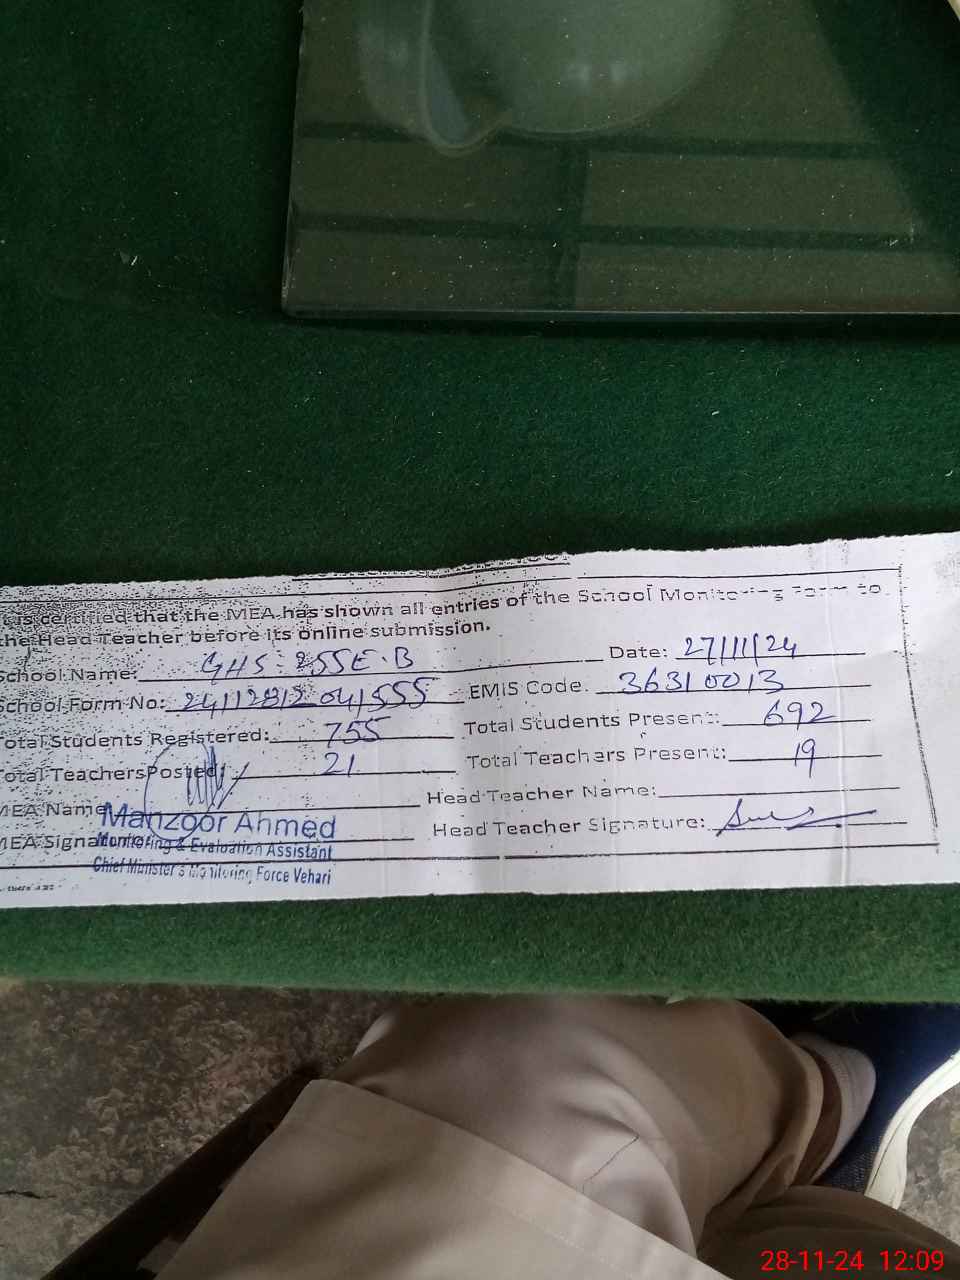 is certified that the MEA has shown all entries of the School Monitoring Form to
the Head Teacher before its online submission.
School Name: GHS 255 E.B Date: 27/11/24
School Form No: EMIS Code. 36310013
Total Students Registered: 755 Total Students Present: 692
Total Teachers Posted: 21 Total Teachers Present: 19
MEA Name Head Teacher Name:
Manzoor Ahmed
MEA Signa Head Teacher Signature:
Monitoring & Evaluation Assistant
Chief Minister's Monitoring Force Vehari
28-11-24 12:09